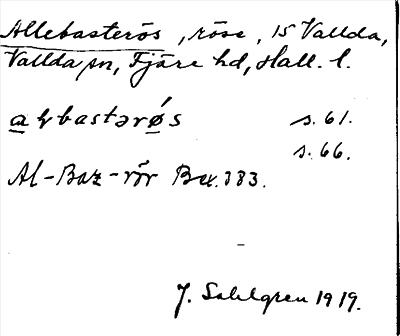 Allebasterös, röse, 15 Vallda,
Vallda sn, Fjäre hd, Hall. l.
alvbastərós s. 61.
s. 66.
Al-Baz-rör Bex. 383.
J. Sahlgren 1919.